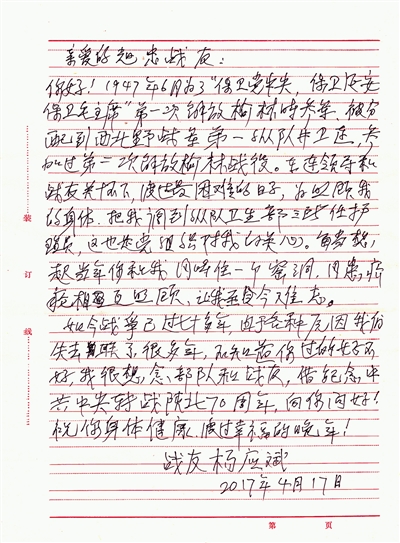 亲爱的忠战友：
你好！1947年6月为了“保卫党中央，保卫延安
保卫毛主席”第一次解放榆林时参军，被分
配到西北野战军第一纵队，参
加过第二次解放榆林战役。在连领导和
战友关怀下，渡过最困难的日子，为照顾我
的身体，把我调到纵队卫生部三所任护
理员，这也是党组织对我的关心。每当想
起当年你和我同时住一个窑洞，同患病
相互照顾，让我至今难忘。
如今战争已过七十多年，由于各种原因我们
失去联了很多年，不知道你过的好不
好，我很想念部队和战友，借纪念中
共中央转战陕北70周年，向你问好！
祝你身体健康，渡过幸福的晚年！
战友杨应斌
2017年4月17日
装
订
线
第 页